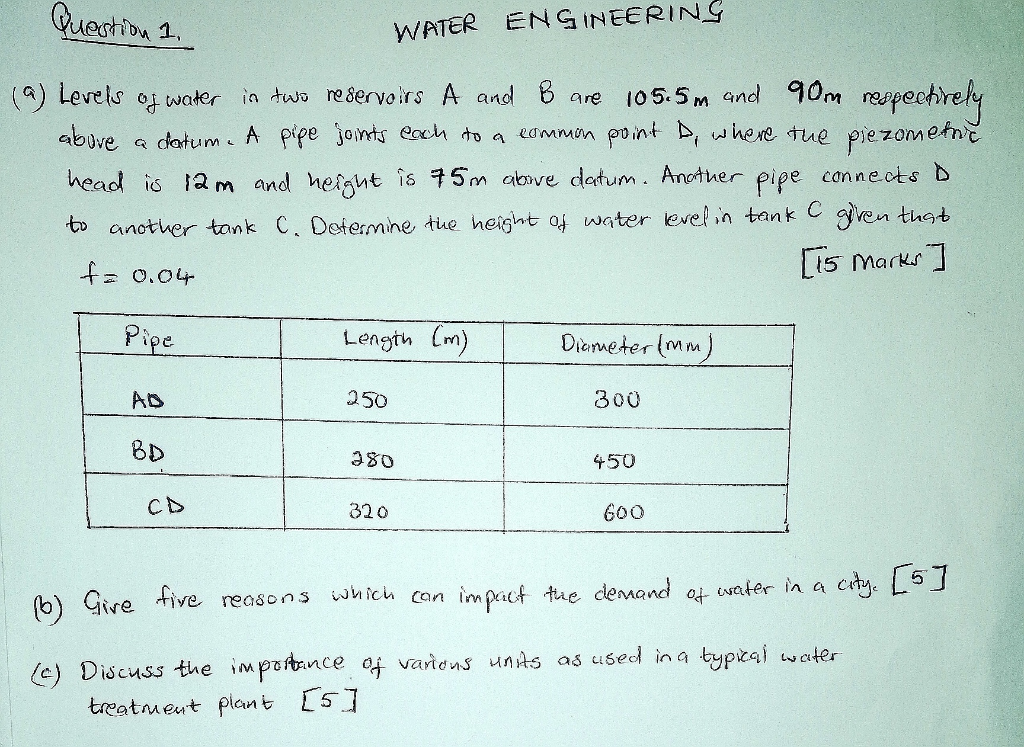 Question 1.
WATER ENGINEERING
(a) Levels of water in two reservoirs A and B are 105.5m and 90m respectively
above a datum. A pipe joints each to a common point D, where the piezometric
head is 12m and height is 75m above datum. Another pipe connects D
to another tank C. Determine the height of water level in tank C given that
f = 0.04
[15 Marks]
Pipe Length (m) Diameter (mm)
AD 250 300
BD 280 450
CD 320 600
(b) Give five reasons which can impact the demand of water in a city. [5]
(c) Discuss the importance of various units as used in a typical water
treatment plant [5]